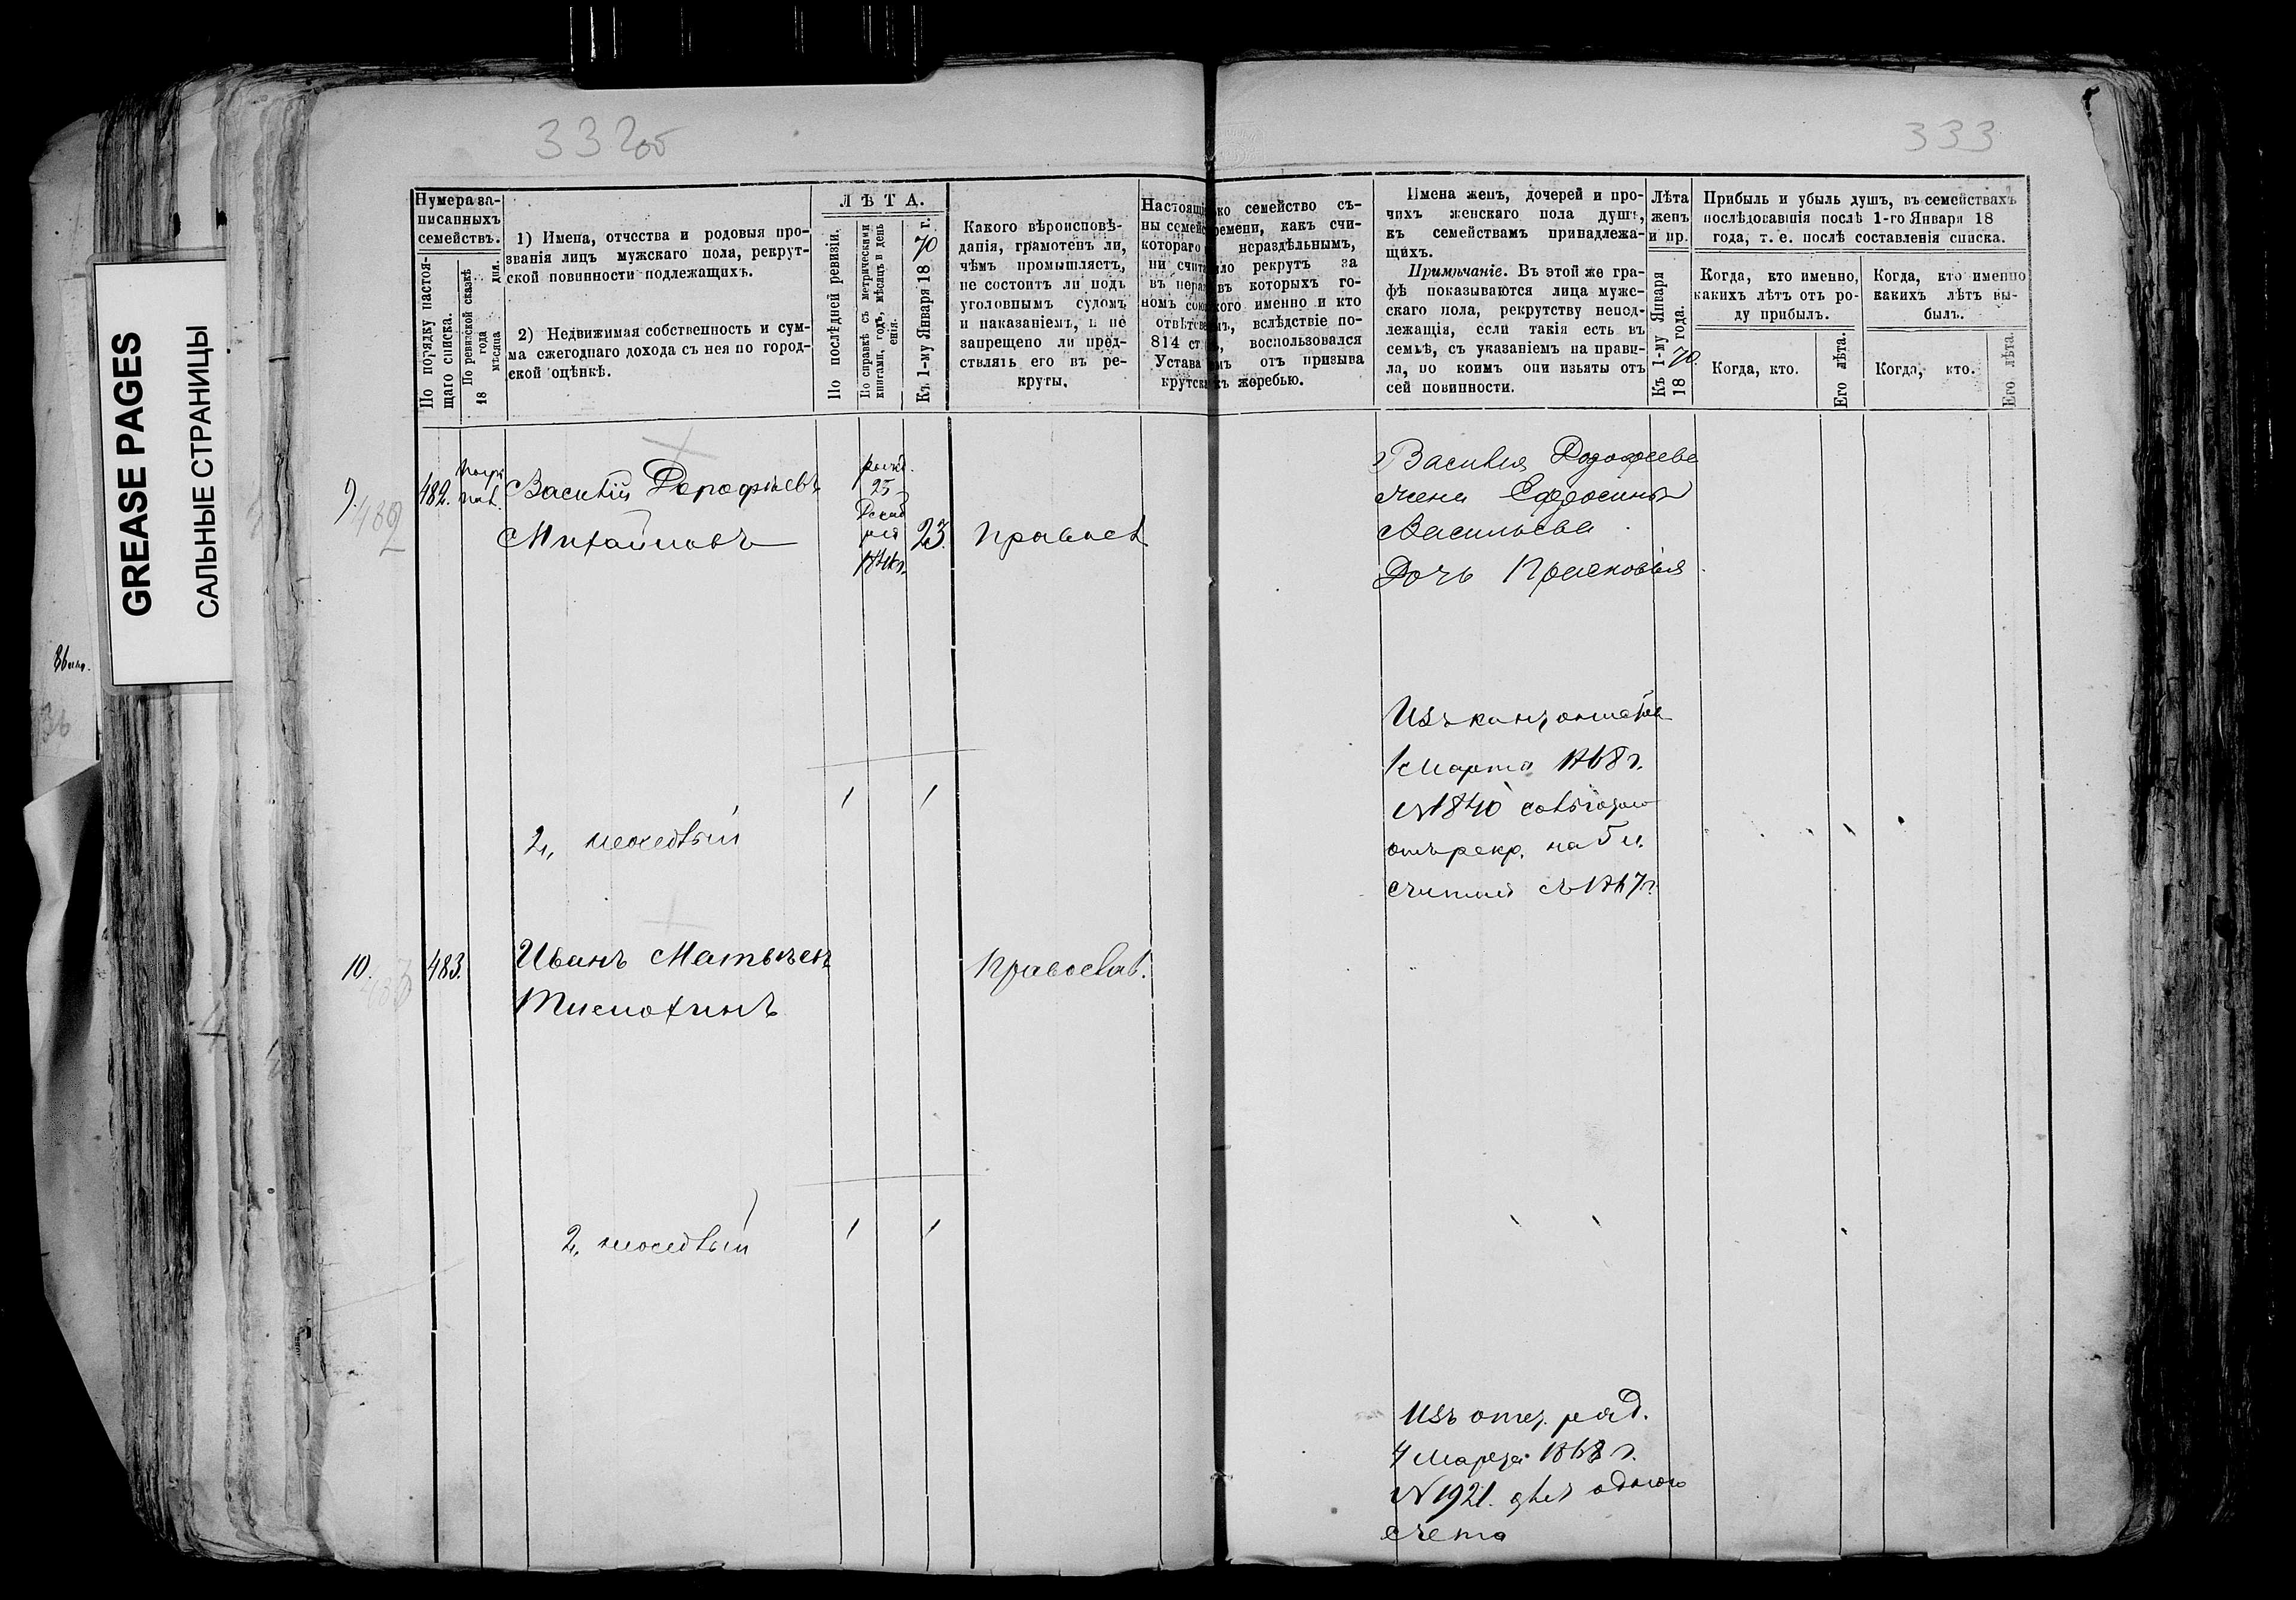 332об
333
GREASE PAGES
САЛЬНЫЕ СТРАНИЦЫ
Нумера за-
писанныхъ
семействъ.
По порядку настоя-
щаго списка.
По ревизской сказкѣ
18 года
мѣсяца дня.
1) Имена, отчества и родовыя про-
званія лицъ мужскаго пола, рекрут-
ской повинности подлежащихъ.
2) Недвижимая собственность и сум-
ма ежегоднаго дохода съ нея по город-
ской оцѣнкѣ.
ЛѢТА.
По послѣдней ревизіи.
По справкѣ съ метрическими
книгами, годъ, мѣсяцъ и день
Къ 1-му Января 1870 г.
Какого вѣроисповѣ-
данія, грамотенъ ли,
чѣмъ промышляетъ,
не состоитъ ли подъ
уголовнымъ судомъ
и наказаніемъ, и не
запрещено ли пред-
ствлять его въ ре-
круты.
Настоящ
ны семейс
котораго
ни счита
въ нера
номъ сою
отвѣтстве
814 ст
Устава
крутска
ко семейство съ-
ремени, какъ счи-
нераздѣльнымъ,
ло рекрутъ за
въ которыхъ го-
кого именно и кто
мъ, вслѣдствіе по-
воспользовался
мъ отъ призыва
къ жеребью.
Имена женъ, дочерей и про-
чихъ женскаго пола душъ,
къ семействамъ принадлежа-
щихъ.
Примѣчаніе. Въ этой же гра-
фѣ показываются лица муж-
скаго пола, рекрутству непод-
лежащія, если такія есть въ
семьѣ, съ указаніемъ на прави-
ла, по коимъ они изъяты отъ
сей повинности.
Лѣта
женъ
и пр.
Къ 1-му Января
1870 года.
Прибыль и убыль душъ, въ семействахъ
послѣдовавшія послѣ 1-го Января 18
года, т. е. послѣ составленія списка.
Когда, кто именно,
какихъ лѣтъ отъ ро-
ду прибылъ.
Когда, кто именно
какихъ лѣтъ вы-
былъ.
Когда, кто.
Его лѣта.
Когда, кто.
Его лѣта.
9.
482
482.
Василій Дорофѣевъ
Михайловъ
рожд.
25
Декаб
ря
23.
Правосл
Василія Дорофѣева
жена Ефросинья
Васильева
Дочь Прасковья
1 Марта 1868 г.
№1840
отъ рекр. на 5 л.
считая съ 1867 г.
2,
10.
483
483.
Иванъ Матвѣевъ
Православ.
2,
Изъ ряд.
4 Марта 1868 г.
№1921. одного
счета